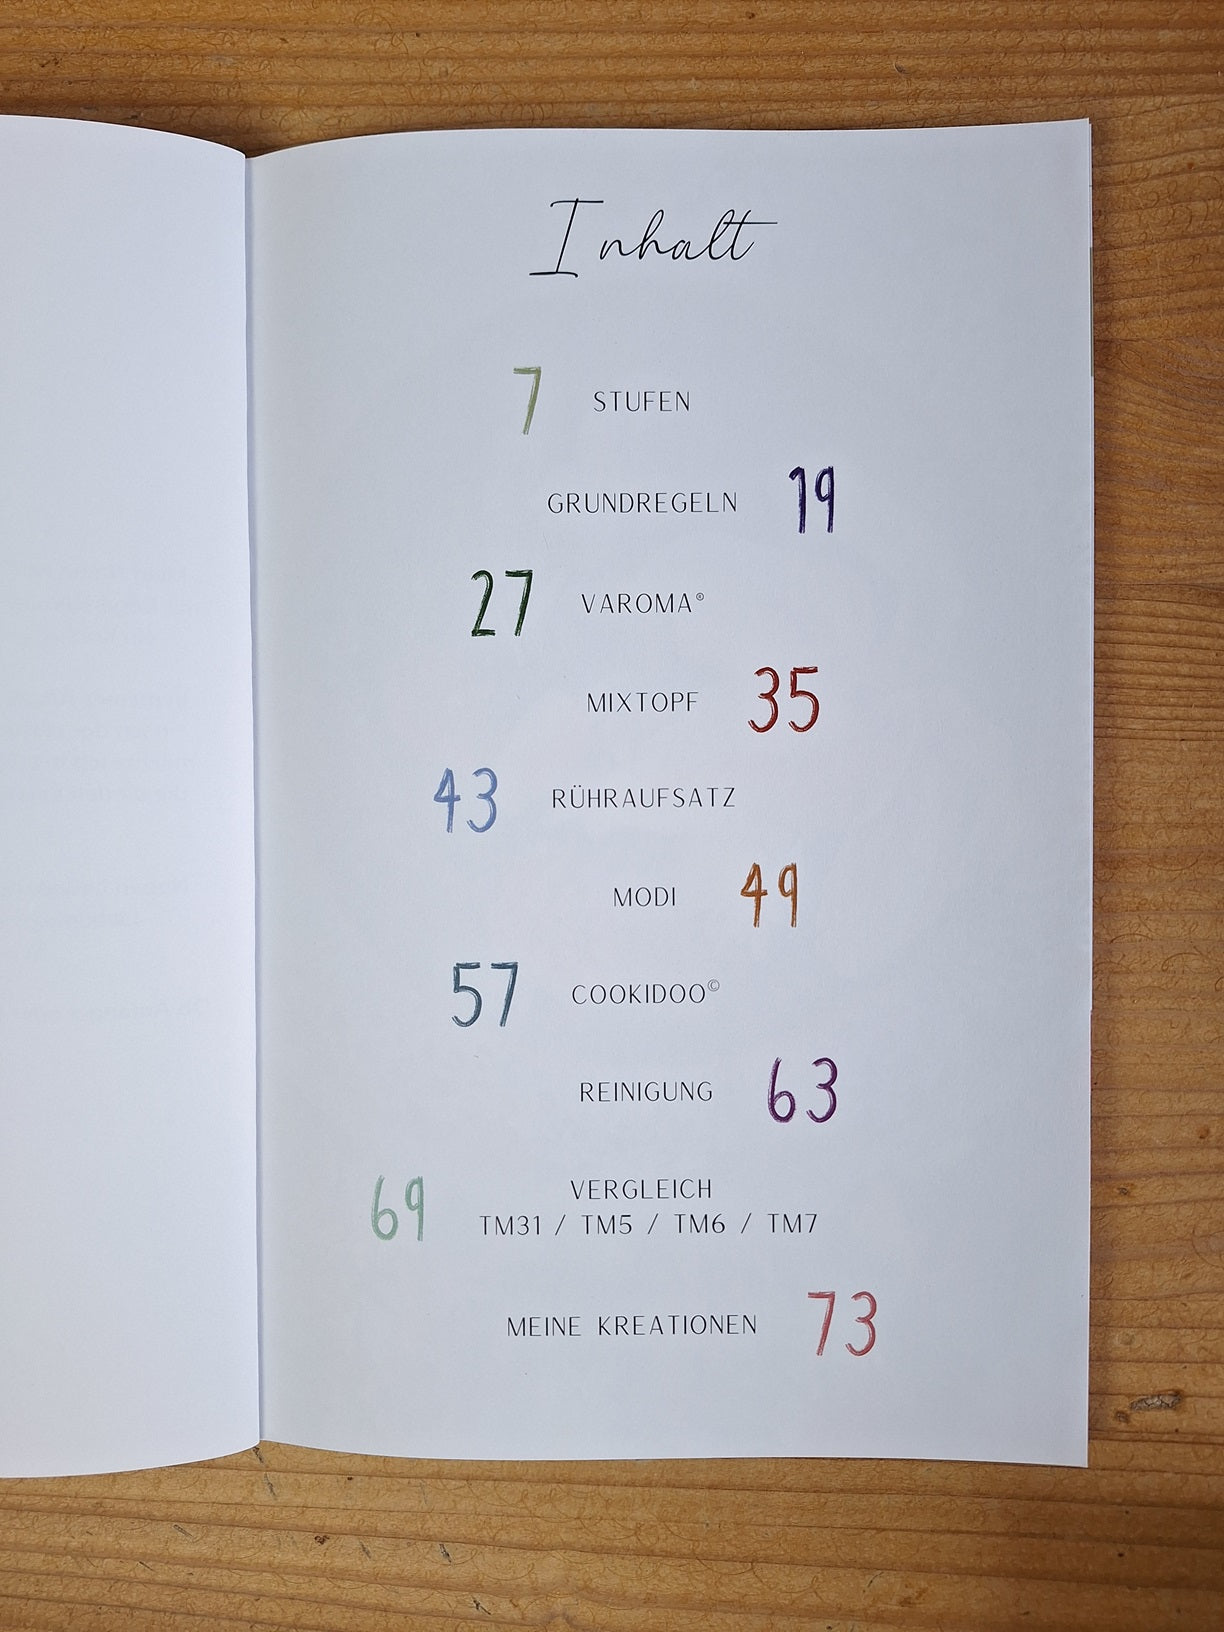 Inhalt
7 STUFEN
GRUNDREGELN 19
27 VAROMA®
MIXTOPF 35
43 RÜHRAUFSATZ
MODI 49
57 COOKIDOO©
REINIGUNG 63
69 VERGLEICH
TM31 / TM5 / TM6 / TM7
MEINE KREATIONEN 73